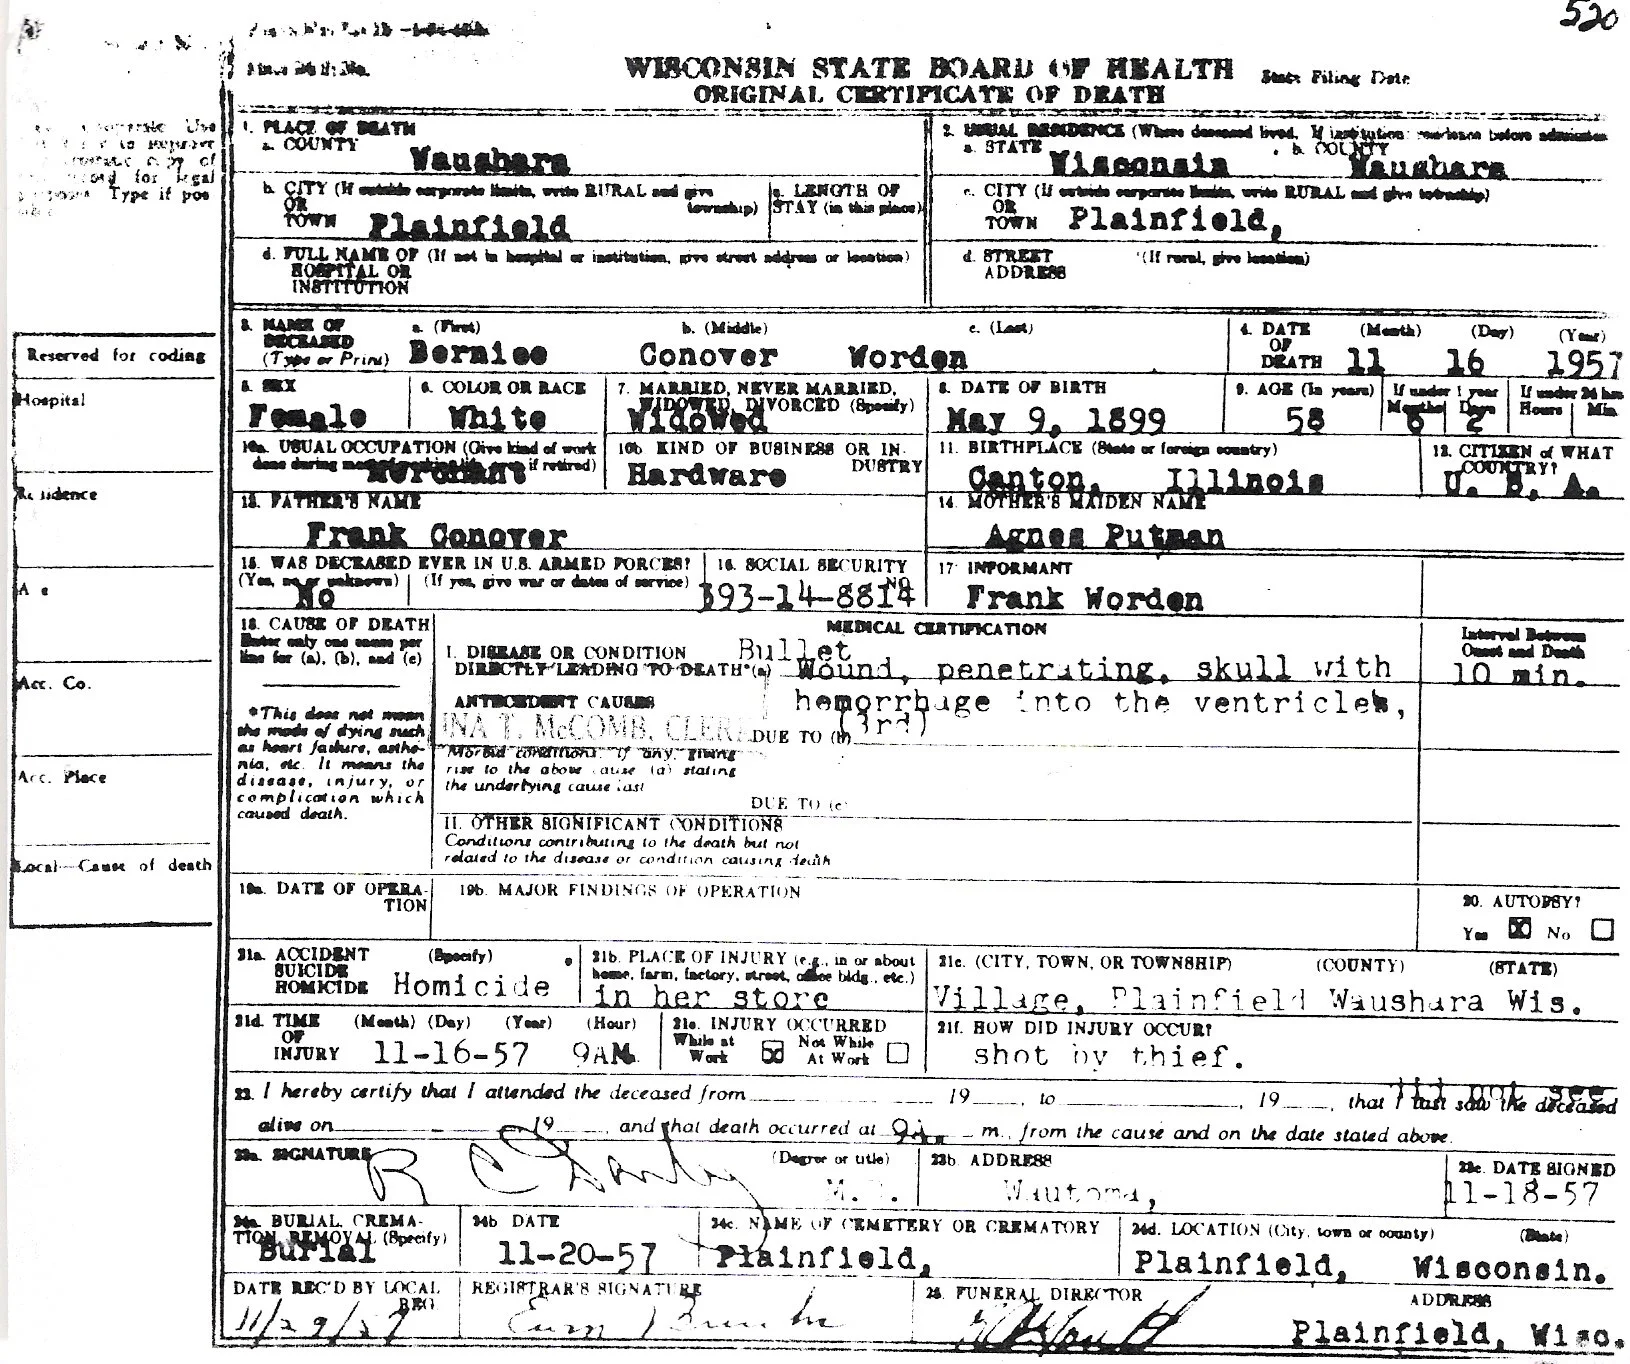 520
WISCONSIN STATE BOARD OF HEALTH
ORIGINAL CERTIFICATE OF DEATH
State Filing Date
Use
copy of
for legal
Type if pos
1. PLACE OF DEATH
a. COUNTY
Waushara
2. USUAL RESIDENCE (Where deceased lived. If institution: residence before admission
a. STATE
Wisconsin
b. COUNTY
Waushara
b. CITY (If outside corporate limits, write RURAL and give township)
OR
TOWN
Plainfield
c. LENGTH OF
STAY (in this place)
c. CITY (If outside corporate limits, write RURAL and give township)
OR
TOWN
Plainfield,
d. FULL NAME OF (If not in hospital or institution, give street address or location)
HOSPITAL OR
INSTITUTION
d. STREET
ADDRESS
(If rural, give location)
Reserved for coding
Hospital
Residence
Acc. Co.
Acc. Place
Local—Cause of death
3. NAME OF
DECEASED
(Type or Print)
a. (First)
Bernice
b. (Middle)
Conover
c. (Last)
Worden
4. DATE
OF
DEATH
(Month) (Day) (Year)
11 16 1957
5. SEX
Female
6. COLOR OR RACE
White
7. MARRIED, NEVER MARRIED,
WIDOWED, DIVORCED (Specify)
Widowed
8. DATE OF BIRTH
May 9, 1899
9. AGE (In years)
58
If under 1 year
Months Days
6 2
If under 24 hrs
Hours Min.
10a. USUAL OCCUPATION (Give kind of work
done during most of working life, even if retired)
Merchant
10b. KIND OF BUSINESS OR IN-
DUSTRY
Hardware
11. BIRTHPLACE (State or foreign country)
Canton, Illinois
12. CITIZEN of WHAT
COUNTRY?
U. S. A.
13. FATHER'S NAME
Frank Conover
14. MOTHER'S MAIDEN NAME
Agnes Putman
15. WAS DECEASED EVER IN U.S. ARMED FORCES?
(Yes, no or unknown) (If yes, give war or dates of service)
No
16. SOCIAL SECURITY
NO
393-14-8814
17. INFORMANT
Frank Worden
18. CAUSE OF DEATH
Enter only one cause per
line for (a), (b), and (c)
*This does not mean
the mode of dying such
as heart failure, asthe-
nia, etc. It means the
disease, injury, or
complication which
caused death.
MEDICAL CERTIFICATION
Interval Between
Onset and Death
10 min.
I. DISEASE OR CONDITION
DIRECTLY LEADING TO DEATH*(a)
Bullet
Wound, penetrating, skull with
hemorrhage into the ventricles,
(3rd)
ANTECEDENT CAUSES
INA T. McCOMB, CLERK
DUE TO (b)
Morbid conditions, if any, giving
rise to the above cause (a) stating
the underlying cause last
DUE TO (c)
II. OTHER SIGNIFICANT CONDITIONS
Conditions contributing to the death but not
related to the disease or condition causing death
19a. DATE OF OPERA-
TION
19b. MAJOR FINDINGS OF OPERATION
20. AUTOPSY?
Yes No
21a. ACCIDENT
SUICIDE
HOMICIDE
(Specify)
Homicide
21b. PLACE OF INJURY (e.g., in or about
home, farm, factory, street, office bldg., etc.)
in her store
21c. (CITY, TOWN, OR TOWNSHIP) (COUNTY) (STATE)
Village, Plainfield Waushara Wis.
21d. TIME
OF
INJURY
(Month) (Day) (Year) (Hour)
11-16-57 9AM.
21e. INJURY OCCURRED
While at
Work
Not While
At Work
21f. HOW DID INJURY OCCUR?
shot by thief.
did not see
22. I hereby certify that I attended the deceased from 19 , to , 19 , that I last saw the deceased
alive on 19 , and that death occurred at 9a. m., from the cause and on the date stated above.
23a. SIGNATURE
R C Darby
(Degree or title)
M.D.
23b. ADDRESS
Wautoma,
23c. DATE SIGNED
11-18-57
24a. BURIAL, CREMA-
TION, REMOVAL (Specify)
Burial
24b. DATE
11-20-57
24c. NAME OF CEMETERY OR CREMATORY
Plainfield,
24d. LOCATION (City, town or county) (State)
Plainfield, Wisconsin.
DATE REC'D BY LOCAL
REG.
11/29/57
REGISTRAR'S SIGNATURE
25. FUNERAL DIRECTOR
ADDRESS
Plainfield, Wisc.